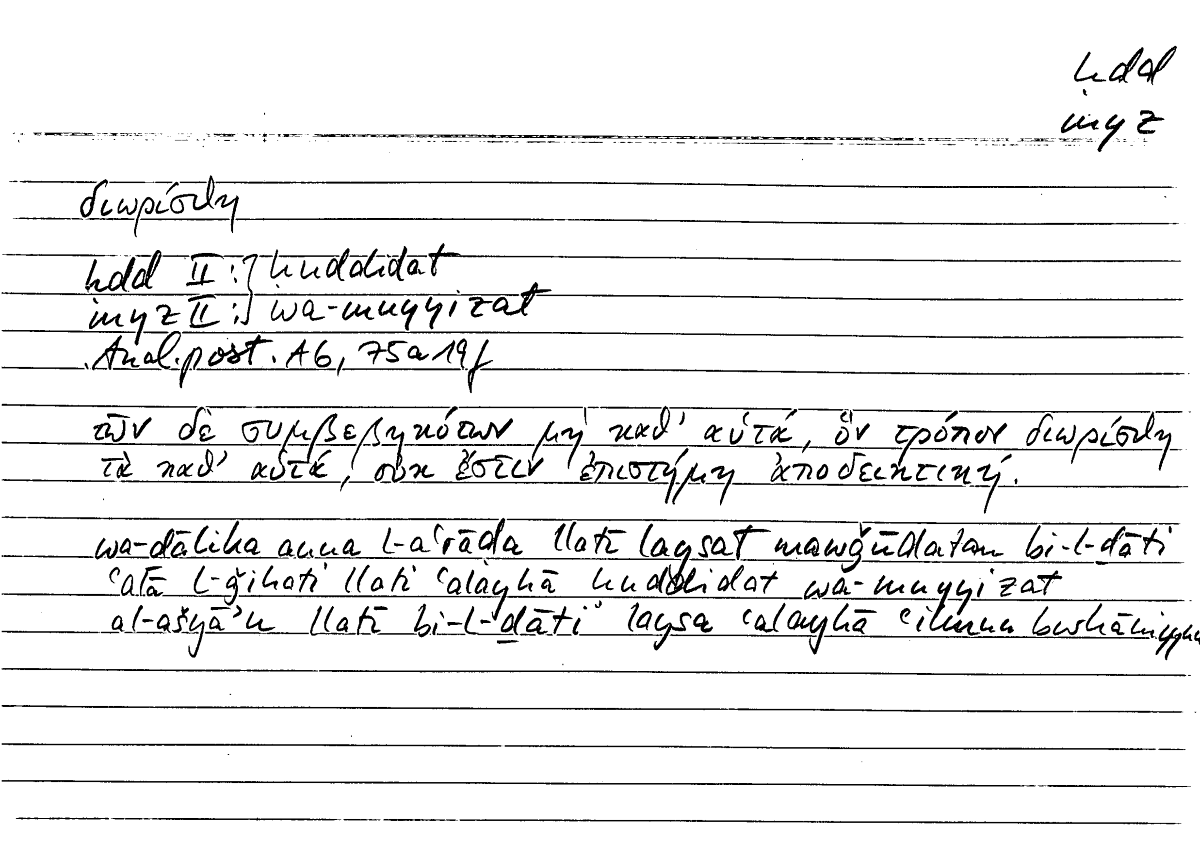 ḥdd
myz
διωρίσθη
ḥdd II : } ḥuddidat
myz II : } wa-muyyizat
Anal. post. A6, 75a19f
τῶν δὲ συμβεβηκότων μὴ καθ' αὑτά, ὃν τρόπον διωρίσθη
τὰ καθ' αὑτά, οὐκ ἔστιν ἐπιστήμη ἀποδεικτική.
wa-ḏālika anna l-aʿrāḍa llatī laysat mawǧūdatan bi-l-ḏāti
ʿalā l-ǧihati llatī ʿalayhā ḥuddidat wa-muyyizat
al-ašyāʾu llatī bi-l-ḏāti laysa ʿalayhā ʿilmun burhāniyyun